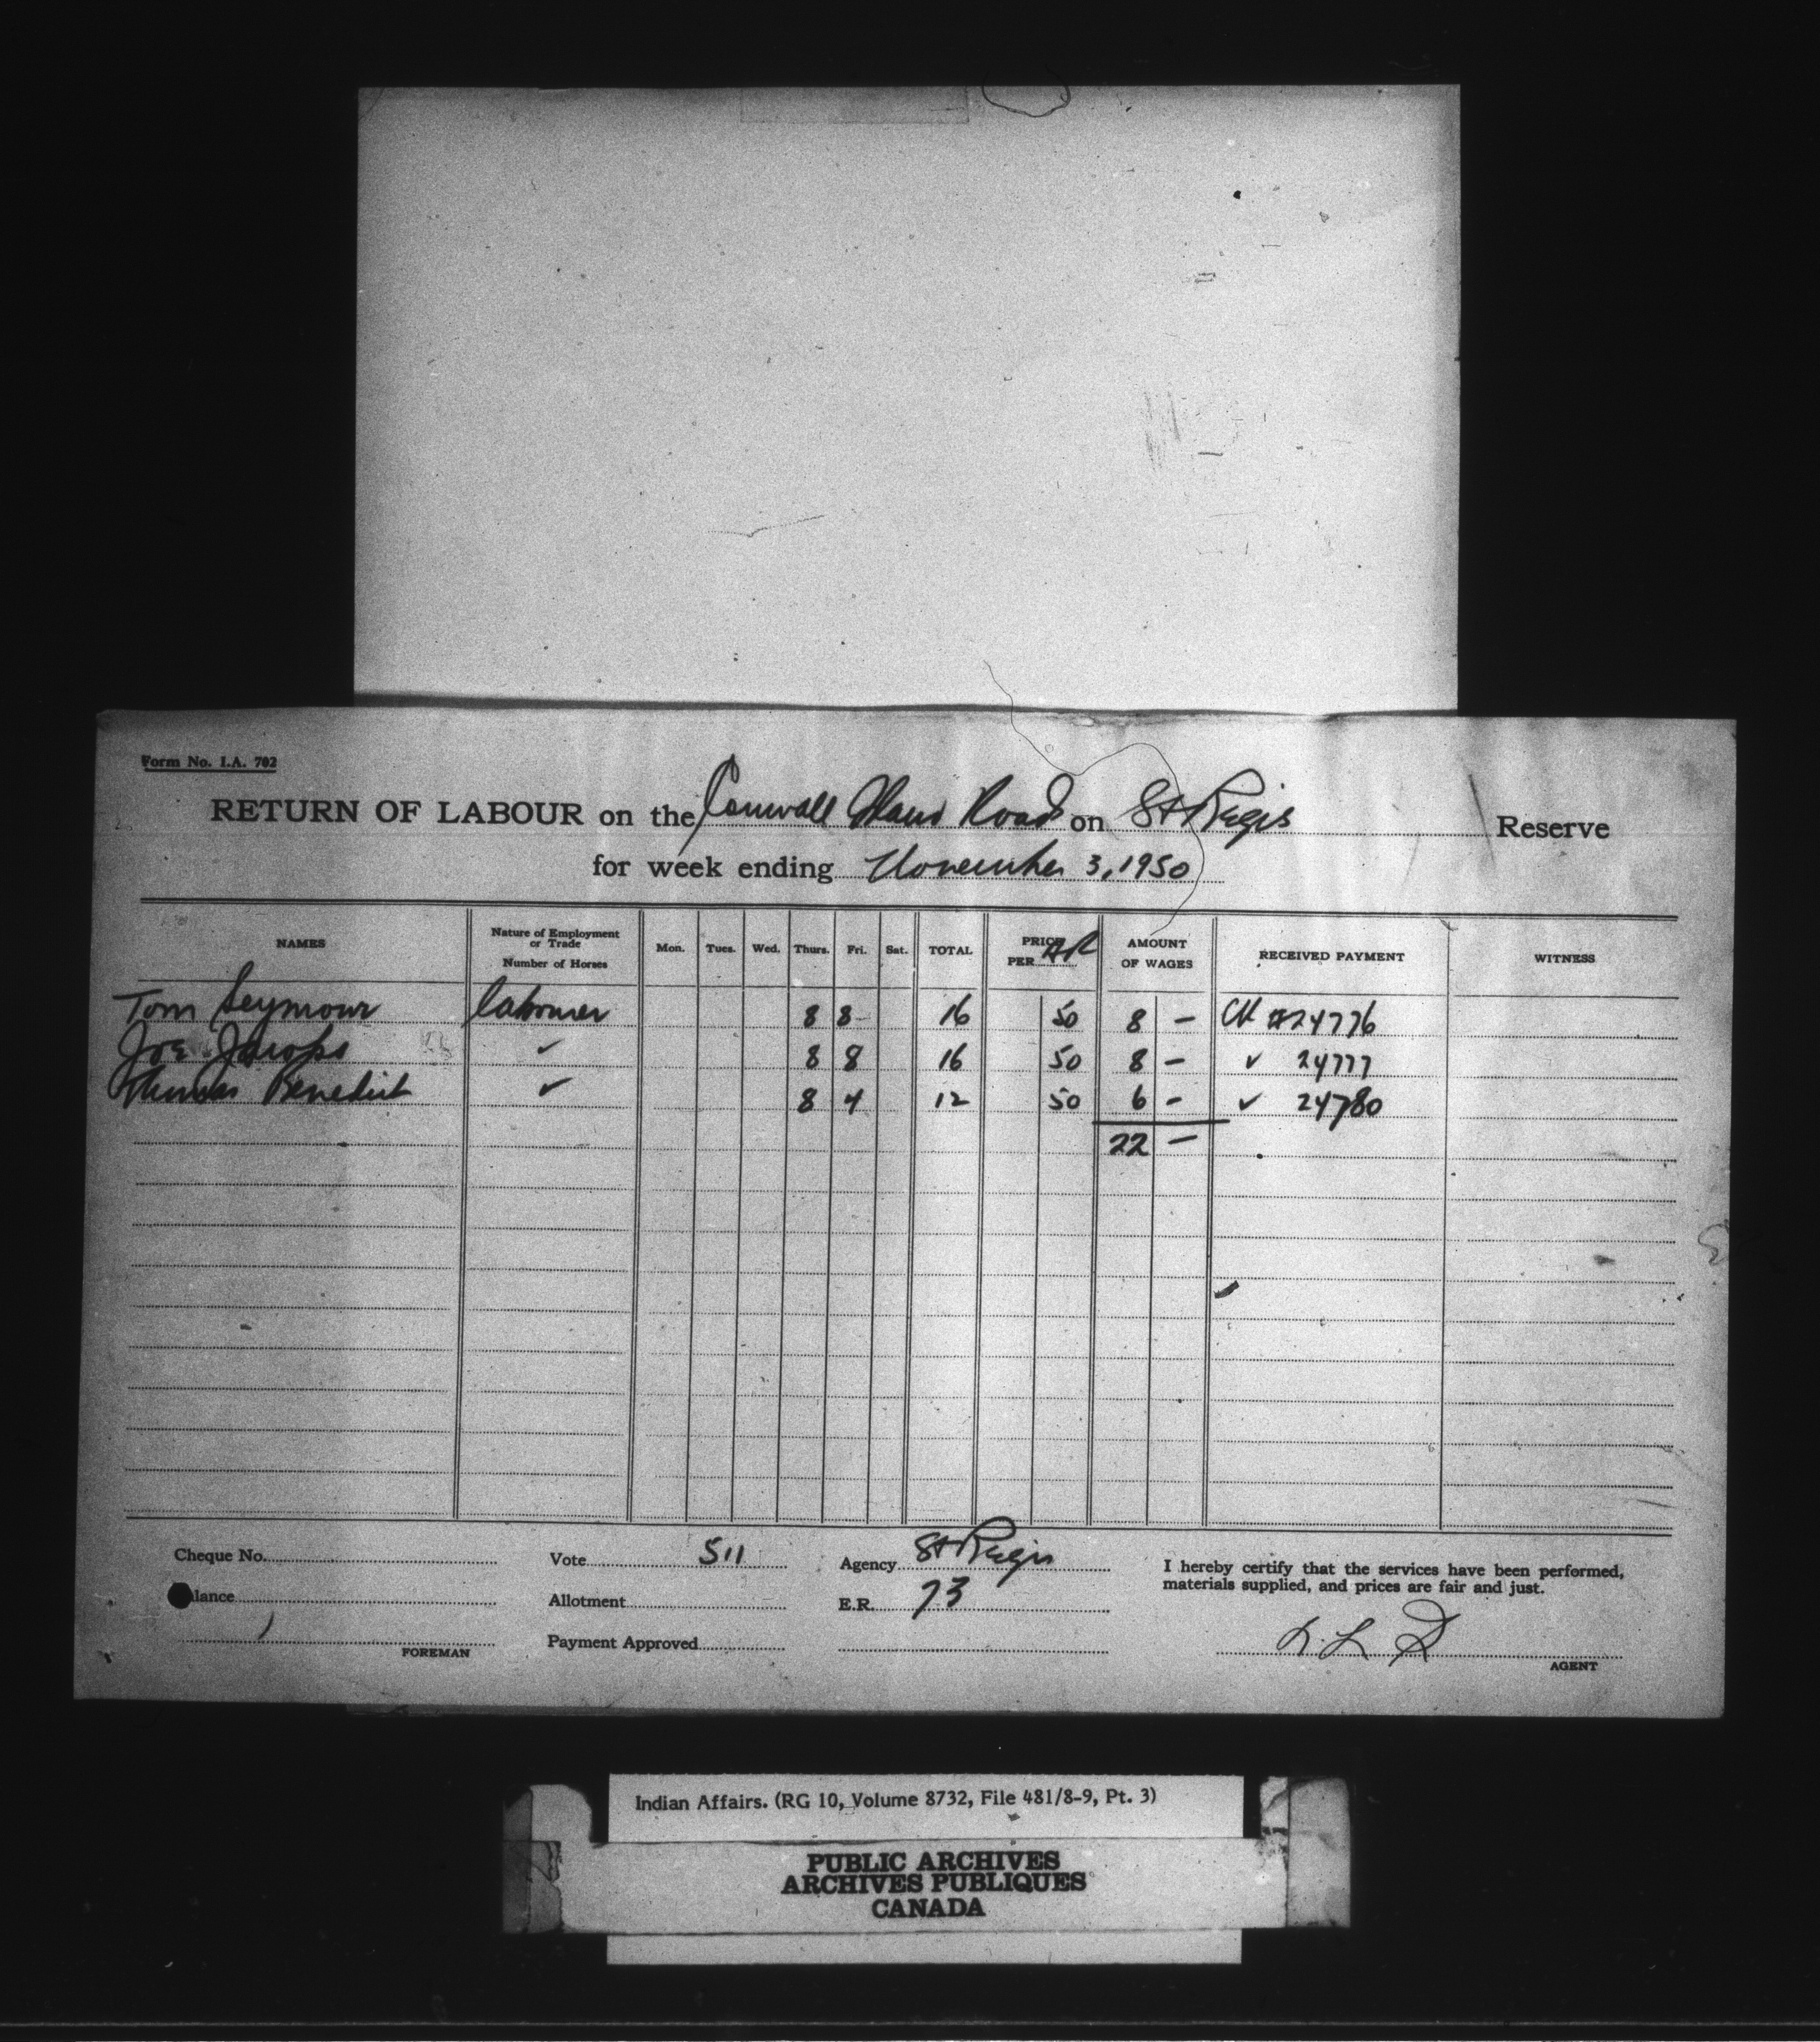 Form No. I.A. 702
RETURN OF LABOUR on the Cornwall Island Road on St Regis Reserve
for week ending November 3, 1950
NAMES Nature of Employment or Trade Number of Horses Mon. Tues. Wed. Thurs. Fri. Sat. TOTAL PRICE PER HR AMOUNT OF WAGES RECEIVED PAYMENT WITNESS
Tom Seymour labourer 8 8 16 50 8 — CK #24776
Joe Jacobs ✓ 8 8 16 50 8 — ✓ 24777
Benedict ✓ 8 4 12 50 6 - ✓ 24780
22 —
Cheque No. Vote 511 Agency St Regis I hereby certify that the services have been performed,
materials supplied, and prices are fair and just.
lance Allotment E.R. 73
FOREMAN Payment Approved AGENT
Indian Affairs. (RG 10, Volume 8732, File 481/8-9, Pt. 3)
PUBLIC ARCHIVES
ARCHIVES PUBLIQUES
CANADA